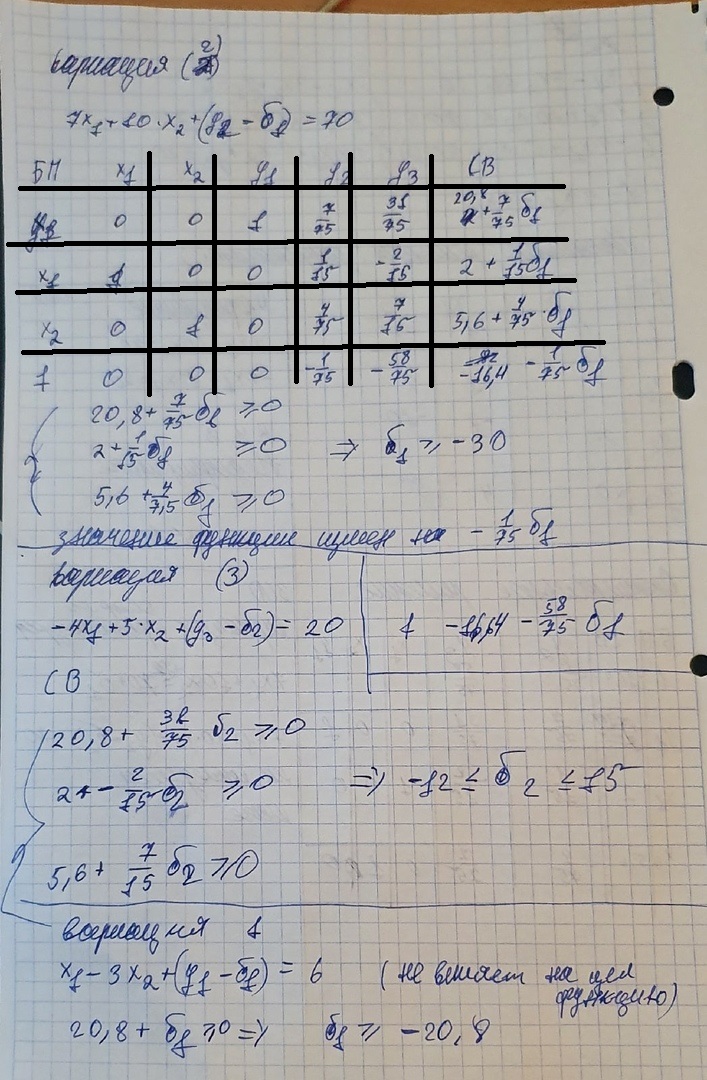 вариация (2)
7x₁+10·x₂+(y₂-δ₁)=70
БП x₁ x₂ y₁ y₂ y₃ СВ
0 0 1 7/75 31/75 20,8+7/75 δ₁
x₁ 1 0 0 1/15 -2/15 2+1/15 δ₁
x₂ 0 1 0 4/75 7/15 5,6+4/75·δ₁
f 0 0 0 -1/75 -58/75 -16,4 -1/75 δ₁
20,8+7/75 δ₁ ≥0
2+1/15 δ₁ ≥0 ⇒ δ₁ ≥ -30
5,6+4/7,5 δ₁ ≥0
значение функции измен на -1/75 δ₁
вариация (3)
-4x₁+5·x₂+(y₃-δ₂)=20
f -16,4 -58/75 δ₁
СВ
20,8+31/75 δ₂ ≥0
2-2/15 δ₂ ≥0 ⇒ -12 ≤ δ₂ ≤ 15
5,6+7/15 δ₂ ≥0
вариация 1
x₁-3x₂+(y₁-δ₁)=6 (не влияет на цел
функцию)
20,8+δ₁ ≥0 ⇒ δ₁ ≥ -20,8